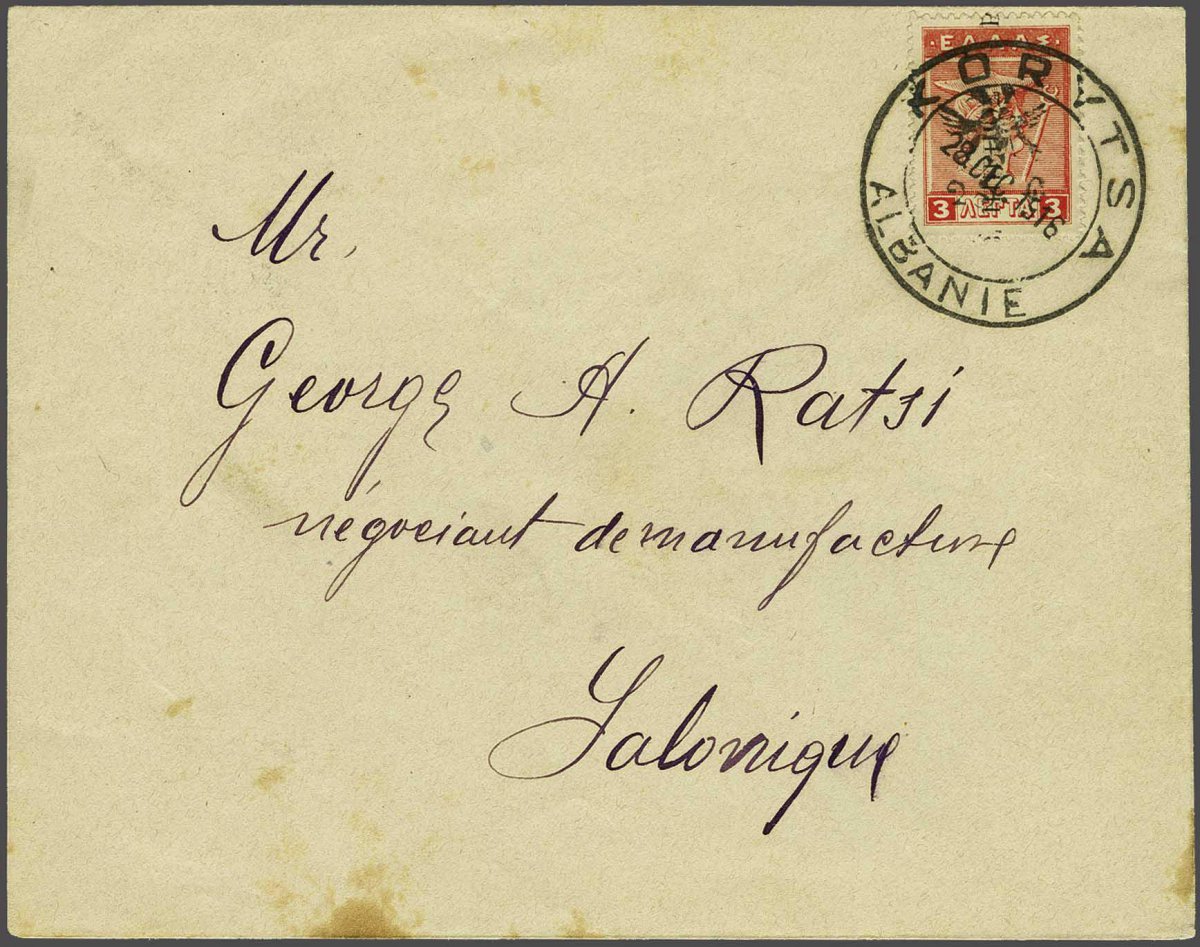 ΕΛΛΑΣ
3 ΛΕΠΤΑ 3
KORYTSA
28 DEC 1916
ALBANIE
Mr.
George A. Ratsi
négociant de manufacture
Salonique